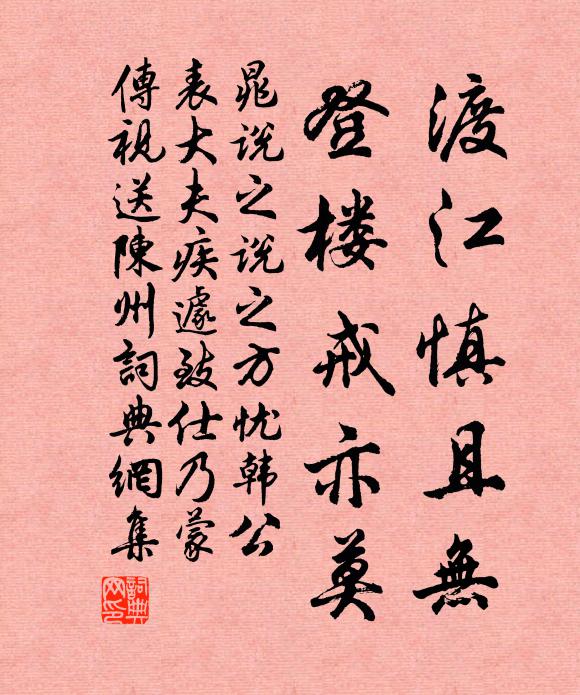 渡江慎且無
登楼戒亦莫
晁说之说之方忧韩公
表大夫疾遽致仕乃蒙
傳視送陳州詞典網集
詞典網印